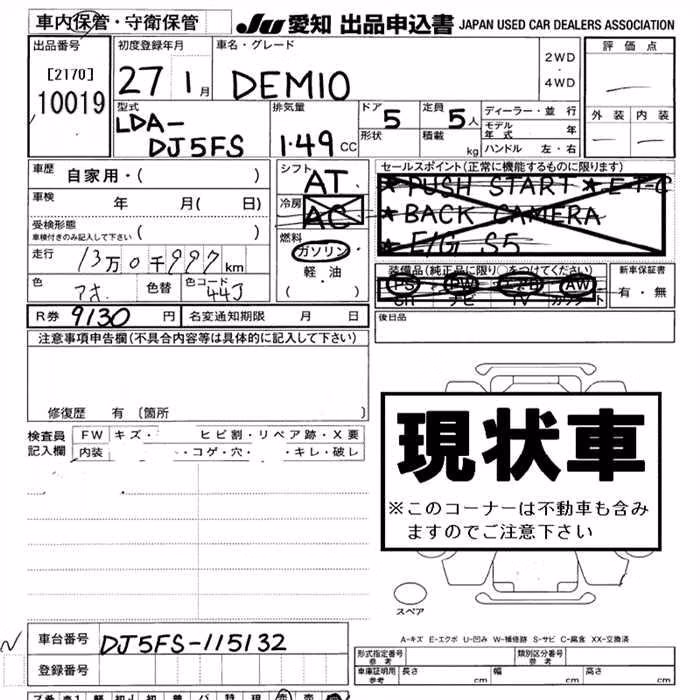 車内保管・守衛保管 JU 愛知 出品申込書 JAPAN USED CAR DEALERS ASSOCIATION
出品番号 初度登録年月 車名・グレード 2WD ・ 4WD 評価点
[2170] 10019 27 1月 DEMIO
外装 内装
型式 LDA-DJ5FS 排気量 1.49 CC ドア 5 形状 定員 5人 積載 kg ディーラー・並行
モデル年式 年
ハンドル 左・右
車歴 自家用・( ) シフト AT セールスポイント(正常に機能するものに限ります)
車検 年 月( 日) 冷房 AC ★PUSH START ★E-T-C
受検形態 車検付きのみ記入して下さい ( ) ★BACK CAMERA
走行 13万0千997km 燃料 ガソリン ・ 軽・油 ( ・ ) ★E/G S5
色 アオ 色替 色コード 44J 装備品(純正品に限り○をつけてください) 新車保証書
PS PW エアB AW 有・無
ナビ TV
R券 9130円 名変通知期限 月 日 後日品
注意事項申告欄(不具合内容等は具体的に記入して下さい)
修復歴 有 〔箇所 〕
検査員記入欄 FW キズ・ ヒビ割・リペア跡・X要
内装 ・コゲ・穴・ ・キレ・破レ
現状車
※このコーナーは不動車も含み
ますのでご注意下さい
スペア
A-キズ E-エクボ U-凹み W-補修跡 S-サビ C-腐食 XX-交換済
車台番号 DJ5FS-115132
登録番号
形式指定番号 参考 類別区分番号 参考
車庫証明用 参考 長さ cm 幅 cm 高さ cm